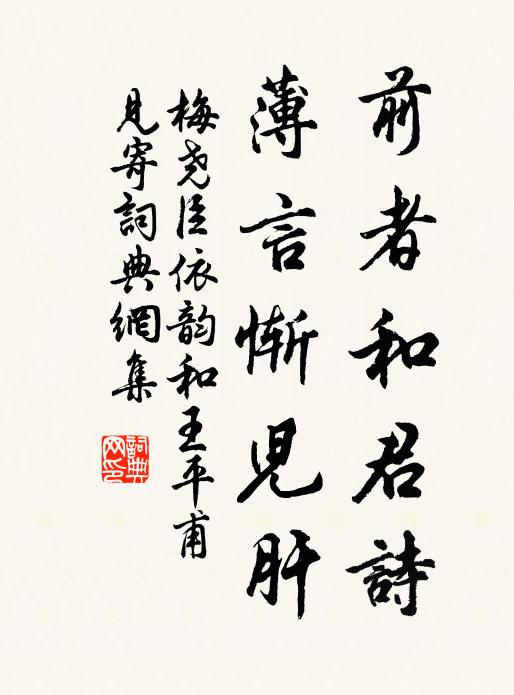 前者和君詩
薄言慚児肝
梅尧臣依韵和王平甫
見寄詞典網集
詞典网印